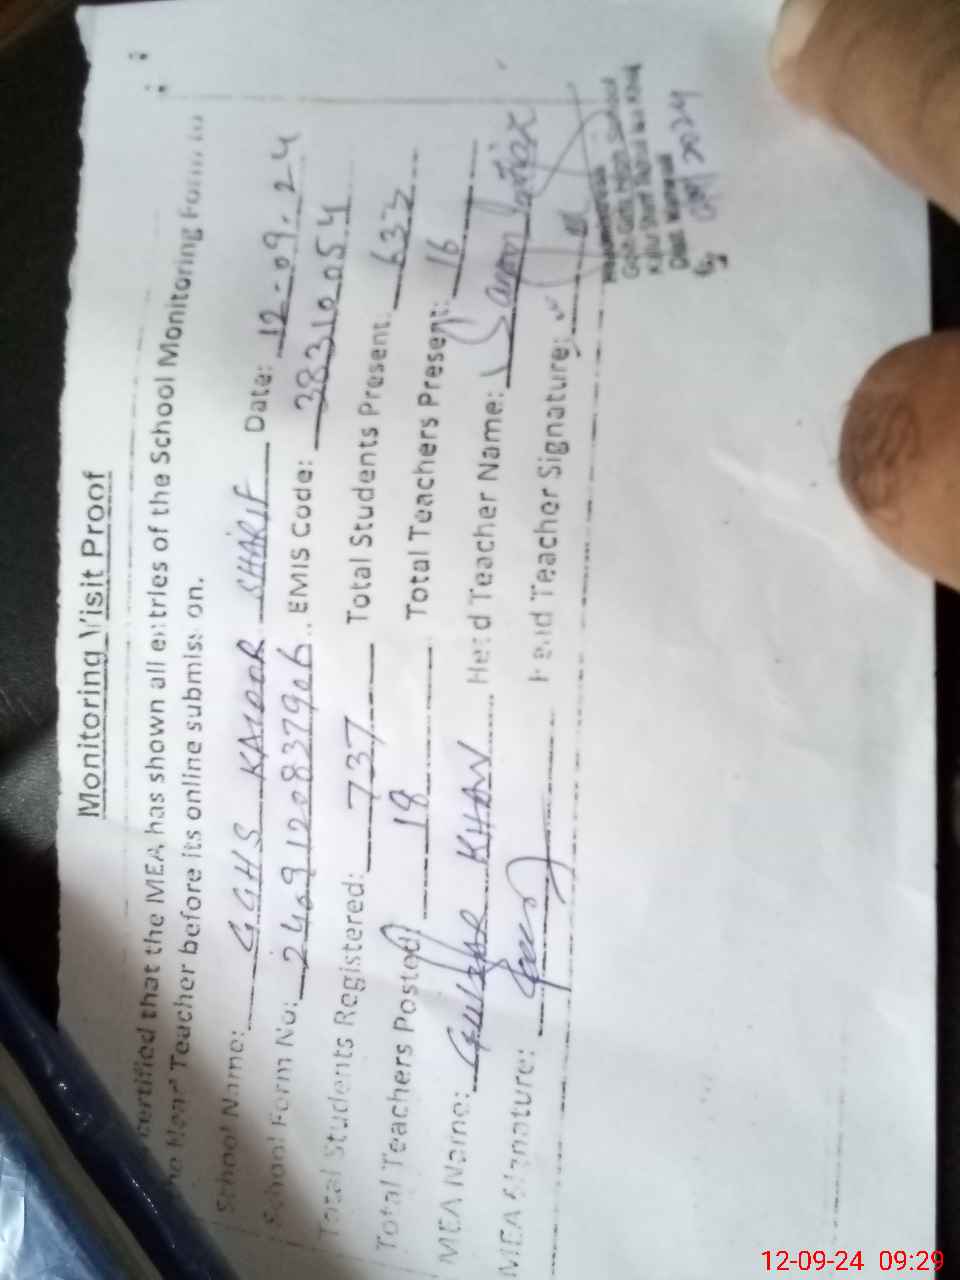 Monitoring Visit Proof
certified that the MEA has shown all entries of the School Monitoring Form to
the Head Teacher before its online submission.
School Name: GGHS KAMOOR SHARIF Date: 12-09-24
School Form No: 2409120837906 EMIS Code: 38310054
Total Students Registered: 737 Total Students Present: 633
Total Teachers Posted: 18 Total Teachers Present: 16
MEA Name: GULZAR KHAN Head Teacher Name:
MEA Signature: Head Teacher Signature:
Headmistress
Govt. Girls High School
Sharif
12-09-24 09:29